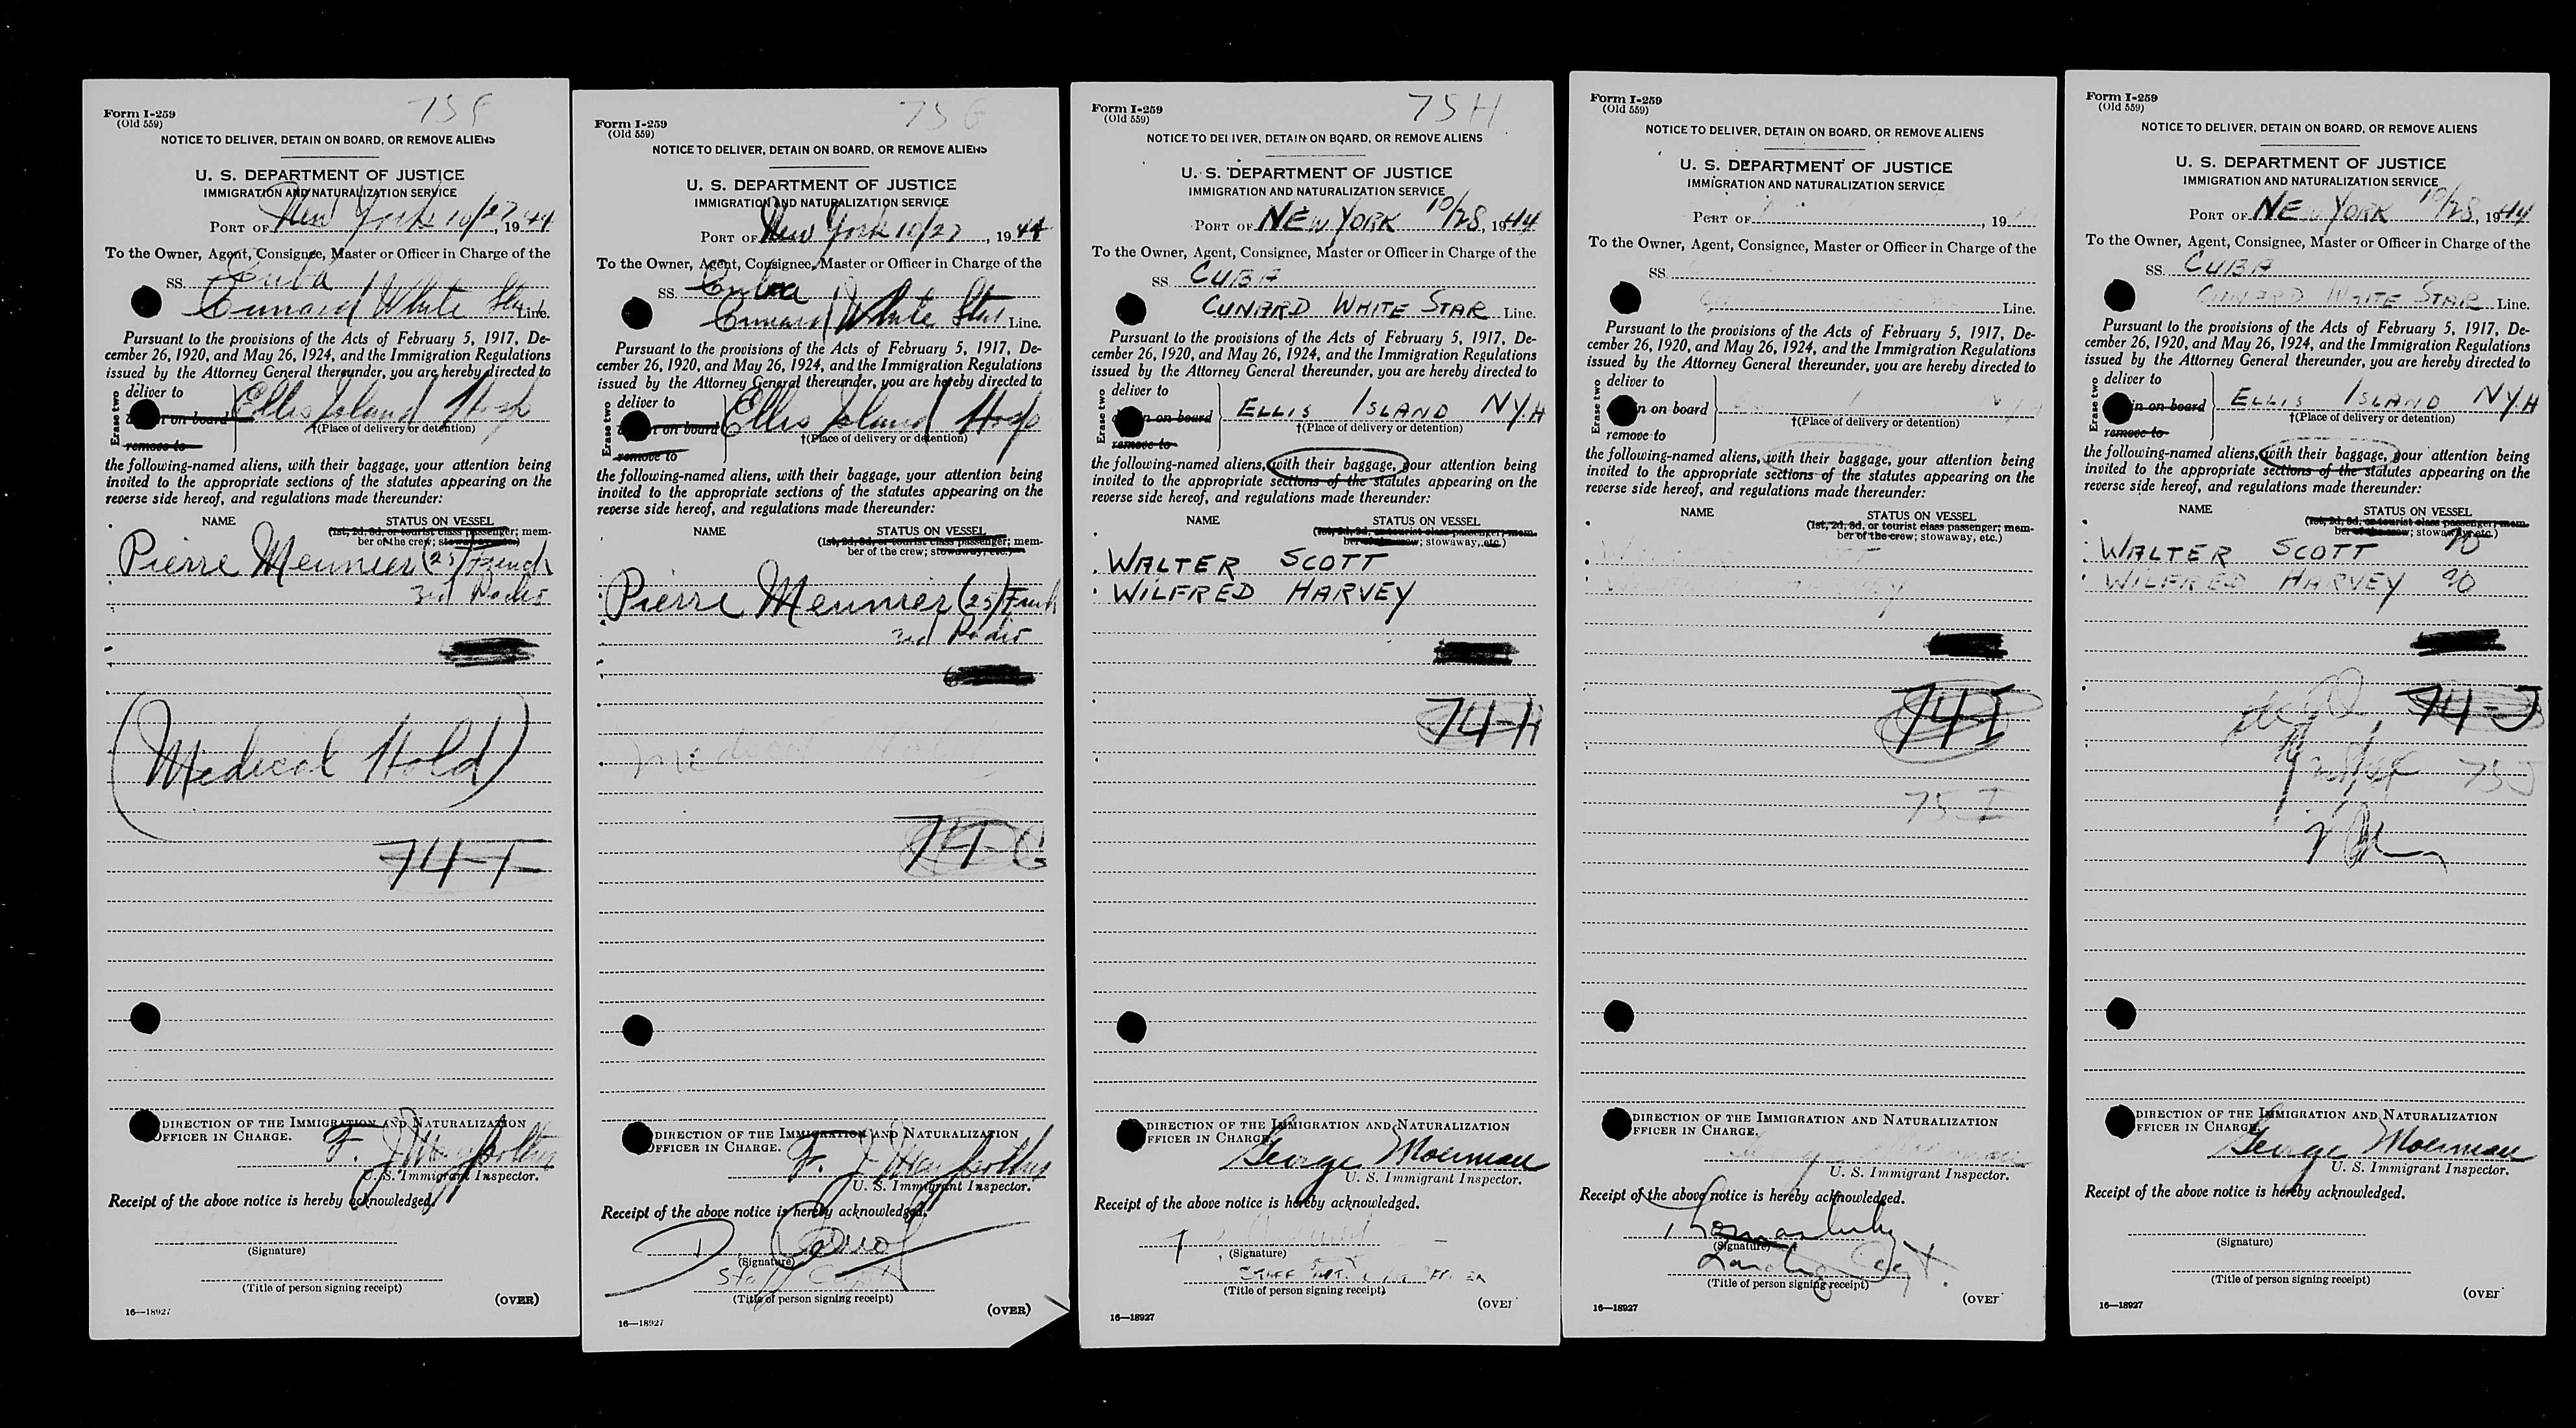 75F
Form I-259
(Old 559)
NOTICE TO DELIVER, DETAIN ON BOARD, OR REMOVE ALIENS
U. S. DEPARTMENT OF JUSTICE
IMMIGRATION AND NATURALIZATION SERVICE
PORT OF New York 10/27, 1944
To the Owner, Agent, Consignee, Master or Officer in Charge of the
SS. Cuba
Cunard White Star Line.
Pursuant to the provisions of the Acts of February 5, 1917, De-
cember 26, 1920, and May 26, 1924, and the Immigration Regulations
issued by the Attorney General thereunder, you are hereby directed to
Erase two
deliver to
n on board
remove to
Ellis Island Hosp
†(Place of delivery or detention)
the following-named aliens, with their baggage, your attention being
invited to the appropriate sections of the statutes appearing on the
reverse side hereof, and regulations made thereunder:
NAME STATUS ON VESSEL
(1st, 2d, 3d, or tourist class passenger; mem-
ber of the crew; stowaway, etc.)
Pierre Meunier (25) French
3rd Radio
(Medical Hold)
74-F
DIRECTION OF THE IMMIGRATION AND NATURALIZATION
OFFICER IN CHARGE.
F. J.
U. S. Immigrant Inspector.
Receipt of the above notice is hereby acknowledged.
(Signature)
(Title of person signing receipt)
16—18927 (OVER)
75G
Form I-259
(Old 559)
NOTICE TO DELIVER, DETAIN ON BOARD, OR REMOVE ALIENS
U. S. DEPARTMENT OF JUSTICE
IMMIGRATION AND NATURALIZATION SERVICE
PORT OF New York 10/27, 1944
To the Owner, Agent, Consignee, Master or Officer in Charge of the
SS. Cuba
Cunard White Star Line.
Pursuant to the provisions of the Acts of February 5, 1917, De-
cember 26, 1920, and May 26, 1924, and the Immigration Regulations
issued by the Attorney General thereunder, you are hereby directed to
Erase two
deliver to
n on board
remove to
Ellis Island Hosp
†(Place of delivery or detention)
the following-named aliens, with their baggage, your attention being
invited to the appropriate sections of the statutes appearing on the
reverse side hereof, and regulations made thereunder:
NAME STATUS ON VESSEL
(1st, 2d, 3d, or tourist class passenger; mem-
ber of the crew; stowaway, etc.)
Pierre Meunier (25) French
3rd Radio
Medical Hold
74-G
DIRECTION OF THE IMMIGRATION AND NATURALIZATION
OFFICER IN CHARGE.
F. J.
U. S. Immigrant Inspector.
Receipt of the above notice is hereby acknowledged.
(Signature)
Staff Capt
(Title of person signing receipt)
16—18927 (OVER)
75H
Form I-259
(Old 559)
NOTICE TO DELIVER, DETAIN ON BOARD, OR REMOVE ALIENS
U. S. DEPARTMENT OF JUSTICE
IMMIGRATION AND NATURALIZATION SERVICE
PORT OF NEW YORK 10/28, 1944
To the Owner, Agent, Consignee, Master or Officer in Charge of the
SS. CUBA
CUNARD WHITE STAR Line.
Pursuant to the provisions of the Acts of February 5, 1917, De-
cember 26, 1920, and May 26, 1924, and the Immigration Regulations
issued by the Attorney General thereunder, you are hereby directed to
Erase two
deliver to
n on board
remove to
ELLIS ISLAND NYH
†(Place of delivery or detention)
the following-named aliens, with their baggage, your attention being
invited to the appropriate sections of the statutes appearing on the
reverse side hereof, and regulations made thereunder:
NAME STATUS ON VESSEL
(1st, 2d, 3d, or tourist class passenger; mem-
ber of the crew; stowaway, etc.)
WALTER SCOTT
WILFRED HARVEY
74-H
DIRECTION OF THE IMMIGRATION AND NATURALIZATION
OFFICER IN CHARGE.
George Moerman
U. S. Immigrant Inspector.
Receipt of the above notice is hereby acknowledged.
(Signature)
STAFF
(Title of person signing receipt)
16—18927 (OVER
Form I-259
(Old 559)
NOTICE TO DELIVER, DETAIN ON BOARD, OR REMOVE ALIENS
U. S. DEPARTMENT OF JUSTICE
IMMIGRATION AND NATURALIZATION SERVICE
PORT OF , 19
To the Owner, Agent, Consignee, Master or Officer in Charge of the
SS.
Line.
Pursuant to the provisions of the Acts of February 5, 1917, De-
cember 26, 1920, and May 26, 1924, and the Immigration Regulations
issued by the Attorney General thereunder, you are hereby directed to
Erase two
deliver to
n on board
remove to
†(Place of delivery or detention)
the following-named aliens, with their baggage, your attention being
invited to the appropriate sections of the statutes appearing on the
reverse side hereof, and regulations made thereunder:
NAME STATUS ON VESSEL
(1st, 2d, 3d, or tourist class passenger; mem-
ber of the crew; stowaway, etc.)
74I
75I
DIRECTION OF THE IMMIGRATION AND NATURALIZATION
OFFICER IN CHARGE.
U. S. Immigrant Inspector.
Receipt of the above notice is hereby acknowledged.
(Signature)
(Title of person signing receipt)
16—18927 (OVER
Form I-259
(Old 559)
NOTICE TO DELIVER, DETAIN ON BOARD, OR REMOVE ALIENS
U. S. DEPARTMENT OF JUSTICE
IMMIGRATION AND NATURALIZATION SERVICE
PORT OF NEW YORK 10/28, 1944
To the Owner, Agent, Consignee, Master or Officer in Charge of the
SS. CUBA
CUNARD WHITE STAR Line.
Pursuant to the provisions of the Acts of February 5, 1917, De-
cember 26, 1920, and May 26, 1924, and the Immigration Regulations
issued by the Attorney General thereunder, you are hereby directed to
Erase two
deliver to
in on board
remove to
ELLIS ISLAND NYH
†(Place of delivery or detention)
the following-named aliens, with their baggage, your attention being
invited to the appropriate sections of the statutes appearing on the
reverse side hereof, and regulations made thereunder:
NAME STATUS ON VESSEL
(1st, 2d, 3d, or tourist class passenger; mem-
ber of the crew; stowaway, etc.)
WALTER SCOTT
WILFRED HARVEY
74-J
75J
DIRECTION OF THE IMMIGRATION AND NATURALIZATION
OFFICER IN CHARGE.
George Moerman
U. S. Immigrant Inspector.
Receipt of the above notice is hereby acknowledged.
(Signature)
(Title of person signing receipt)
16—18927 (OVER